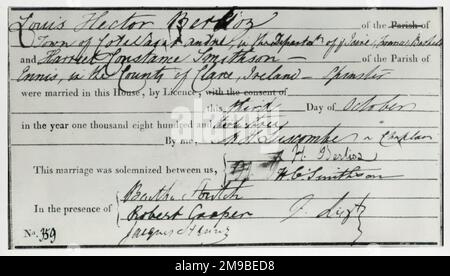 Louis Hector Berlioz of the Parish of
Town of Cote Saint André, in the Departmt of Isère, France, Bachelor
and Harriet Constance Smithson of the Parish of
Ennis, in the County of Clare, Ireland - Spinster
were married in this House, by Licence, with the consent of
this third Day of October
in the year one thousand eight hundred and
By me, Luscombe
This marriage was solemnized between us, H. Berlioz
H. C. Smithson
Bertha Stritch
In the presence of Robert Cooper F. Liszt
Jacques
No. 359
alamy
Image ID: 2M9BED8
www.alamy.com